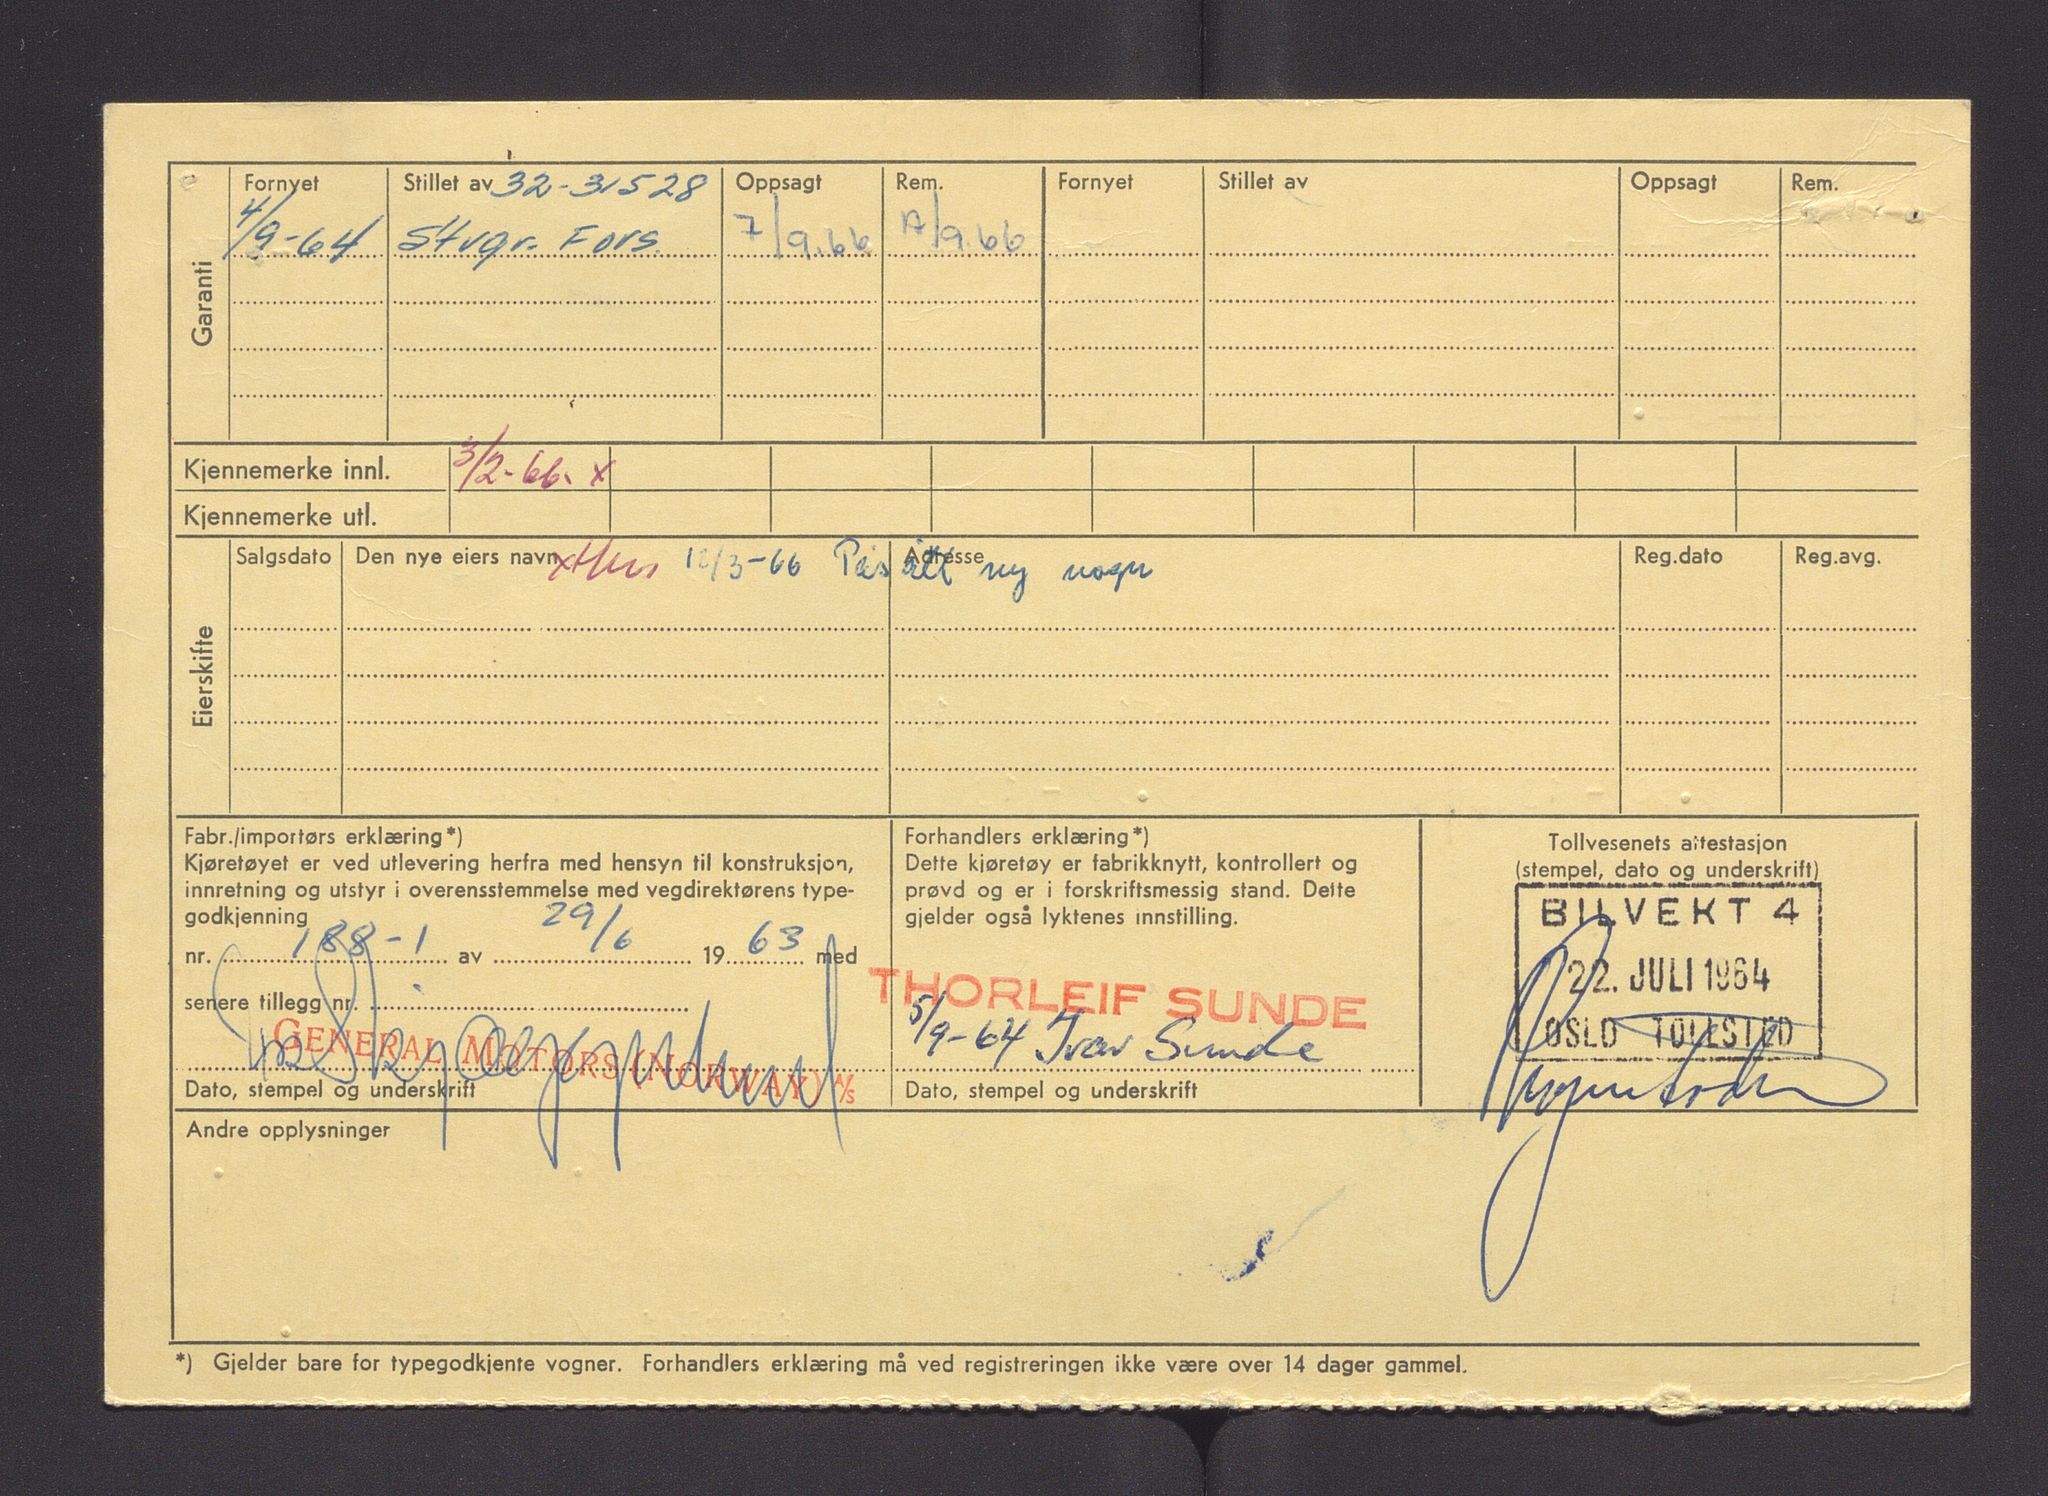 Garanti
Fornyet Stillet av 32-31528 Oppsagt Rem. Fornyet Stillet av Oppsagt Rem.
4/9-64 Stvgr. Fors. 7/9.66 /9.66
Kjennemerke innl. 3/2-66. x
Kjennemerke utl.
Eierskifte
Salgsdato Den nye eiers navn Adresse Reg.dato Reg.avg.
12/3-66 ny vogn
Fabr./importørs erklæring*)
Kjøretøyet er ved utlevering herfra med hensyn til konstruksjon,
innretning og utstyr i overensstemmelse med vegdirektørens type-
godkjenning
nr. 188-1 av 29/6 1963 med
senere tillegg nr.
GENERAL MOTORS (NORWAY) A/S
Dato, stempel og underskrift
Forhandlers erklæring*)
Dette kjøretøy er fabrikknytt, kontrollert og
prøvd og er i forskriftsmessig stand. Dette
gjelder også lyktenes innstilling.
THORLEIF SUNDE
5/9-64 Ivar Sunde
Dato, stempel og underskrift
Tollvesenets attestasjon
(stempel, dato og underskrift)
BILVEKT 4
22. JULI 1964
OSLO TOLLSTED
Andre opplysninger
*) Gjelder bare for typegodkjente vogner. Forhandlers erklæring må ved registreringen ikke være over 14 dager gammel.